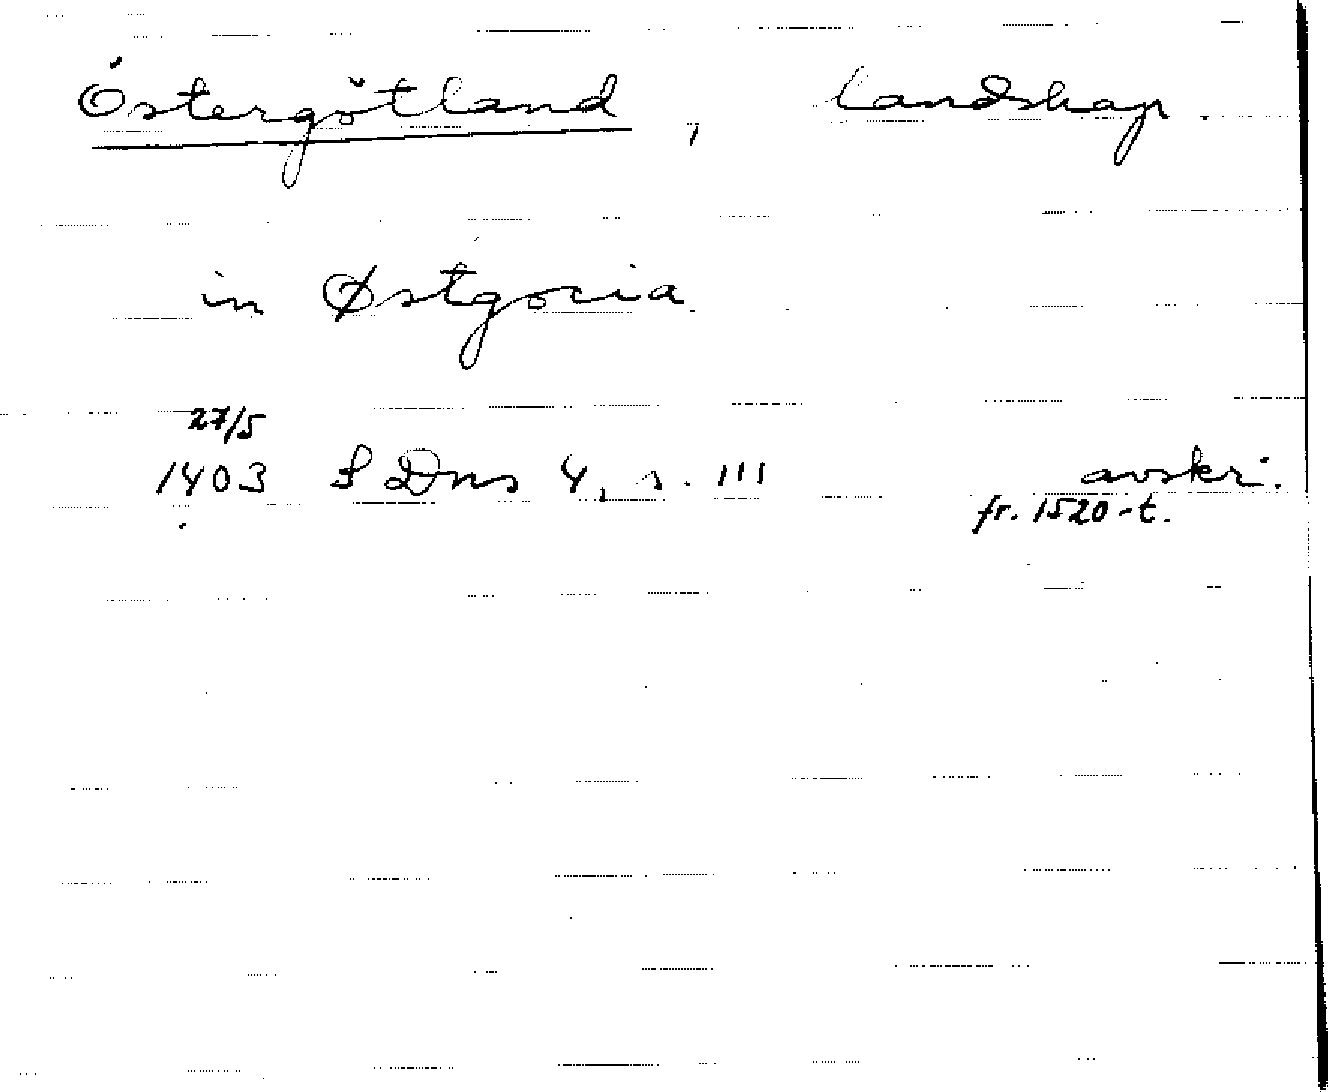 Östergötland, Landskap
in Østgocia
27/5
1403 S Dns 4, s. 111 avskr.
fr. 1520-t.